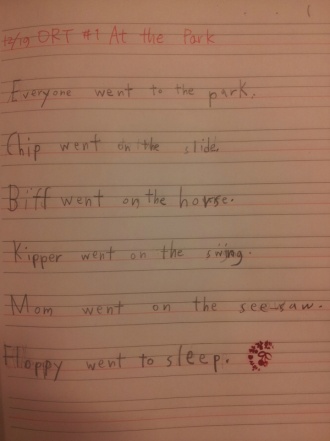 12/19 ORT #1 At the Park
Everyone went to the park.
Chip went on the slide.
Biff went on the horse.
Kipper went on the swing.
Mom went on the see-saw.
Floppy went to sleep.